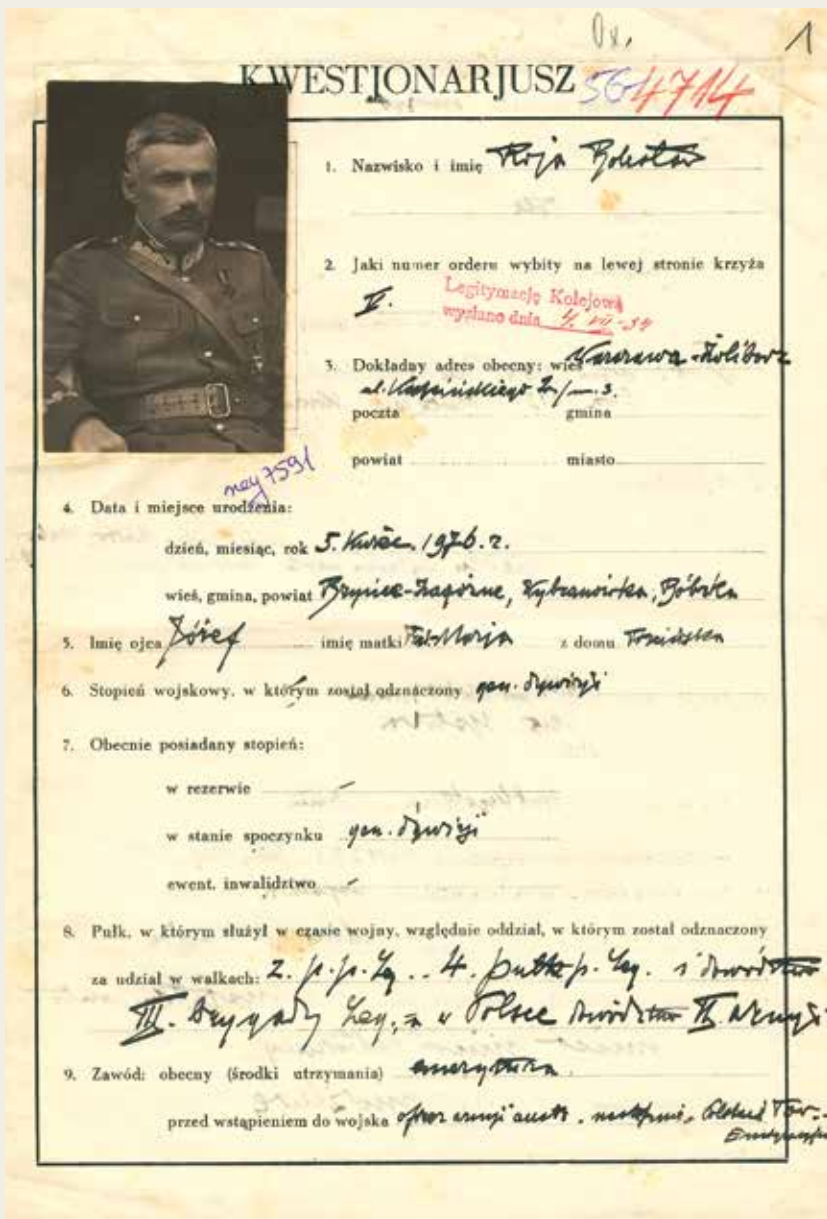 1
KWESTJONARJUSZ 564714
1. Nazwisko i imię Roja Bolesław
2. Jaki numer orderu wybity na lewej stronie krzyża
V.
Legitymację Kolejową
wysłano dnia 4. VII-34
3. Dokładny adres obecny: wieś Warszawa-Żoliborz
m. 3.
poczta gmina
powiat miasto
4. Data i miejsce urodzenia:
dzień, miesiąc, rok 5. Kwiec. 1876. r.
wieś, gmina, powiat Bryńce-Zagórne, Wybranówka, Bóbrka
5. Imię ojca Józef imię matki Marja z domu
6. Stopień wojskowy, w którym został odznaczony gen. dywizji
7. Obecnie posiadany stopień:
w rezerwie –
w stanie spoczynku gen. dywizji
ewent. inwalidztwo –
8. Pułk, w którym służył w czasie wojny, względnie oddział, w którym został odznaczony
za udział w walkach: 2. p.p. Leg. 4. pułk p. Leg. i dowództwo
III. brygady Leg., w Polsce dowództwo II. armji
9. Zawód: obecny (środki utrzymania) emerytura
przed wstąpieniem do wojska oficer armji austr.